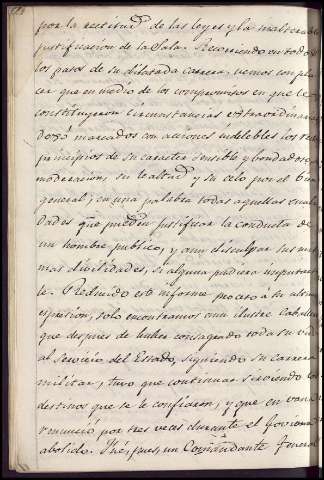 por la rectitud de las leyes y la inalterable
justificacion de la Sala. Recorriendo en todos
los pasos de su dilatada carrera, vemos con pla
cer que en medio de los compromisos en que le
constituyeron circunstancias extraordinarias
dexó marcados con acciones indelebles los
principios de su caracter sensible y bondadoso,
moderacion, su lealtad y su celo por el bien
general; en una palabra todas aquellas cuali
dades que pueden justificar la conducta de
un hombre publico, y aun disculpar sus
mas debilidades, si alguna pudiera imputarse
le. Reducido este informe proceso á su ultima
expresion, solo encontramos un ilustre Caballero
que despues de haber consagrado toda su vida
al Servicio del Estado, siguiendo su carrera
militar, tuvo que continuar sirviendo los
destinos que se le confiaron, y que en vano
renunció por tres veces durante el Govierno
abolido. Ihé, pues, un Comandante General